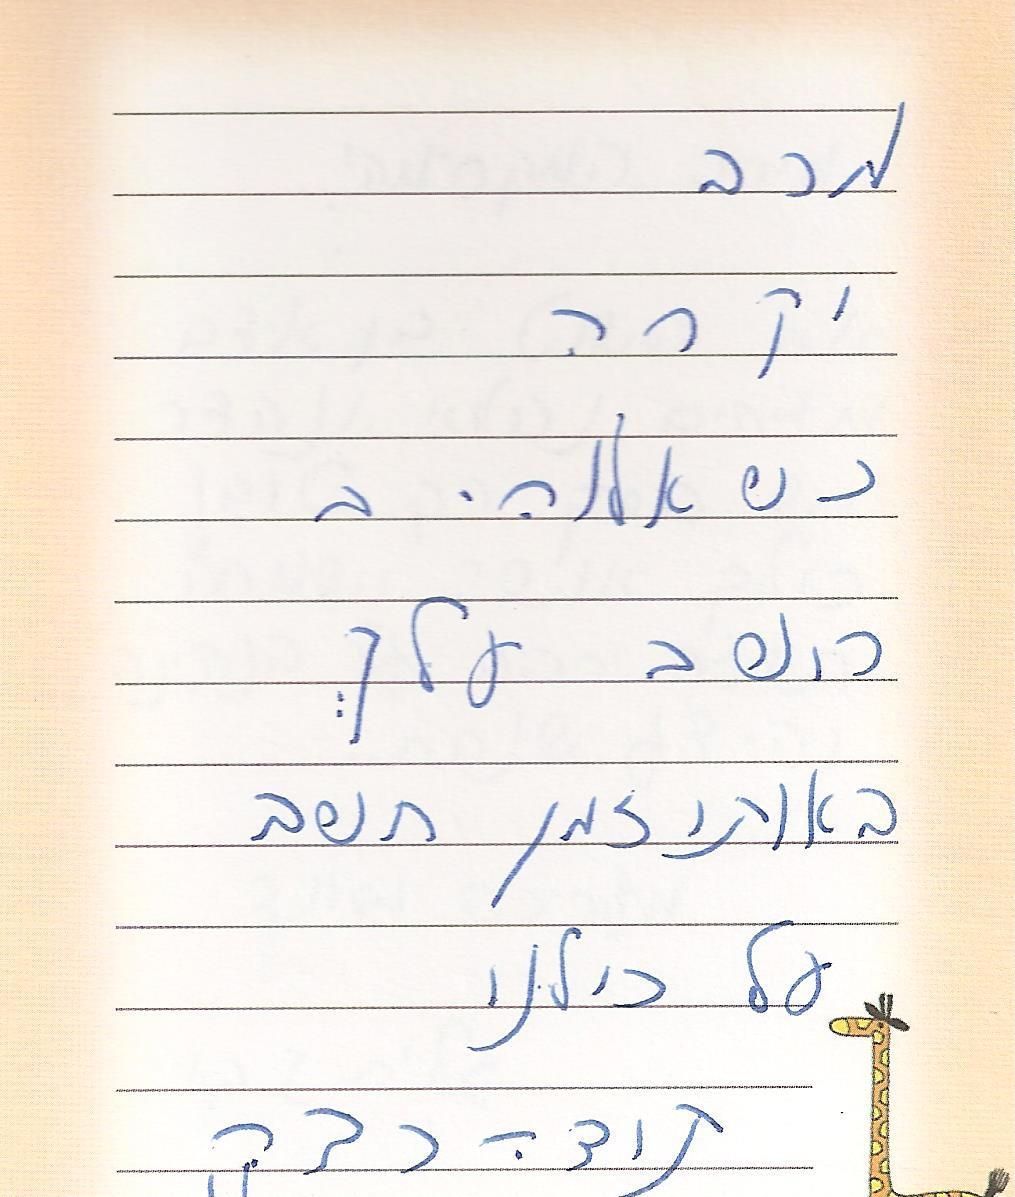 מרב
יקרה
כשאלוהי ב
כושב עלך:
באותו זמן חשב
על כולנו
תודה